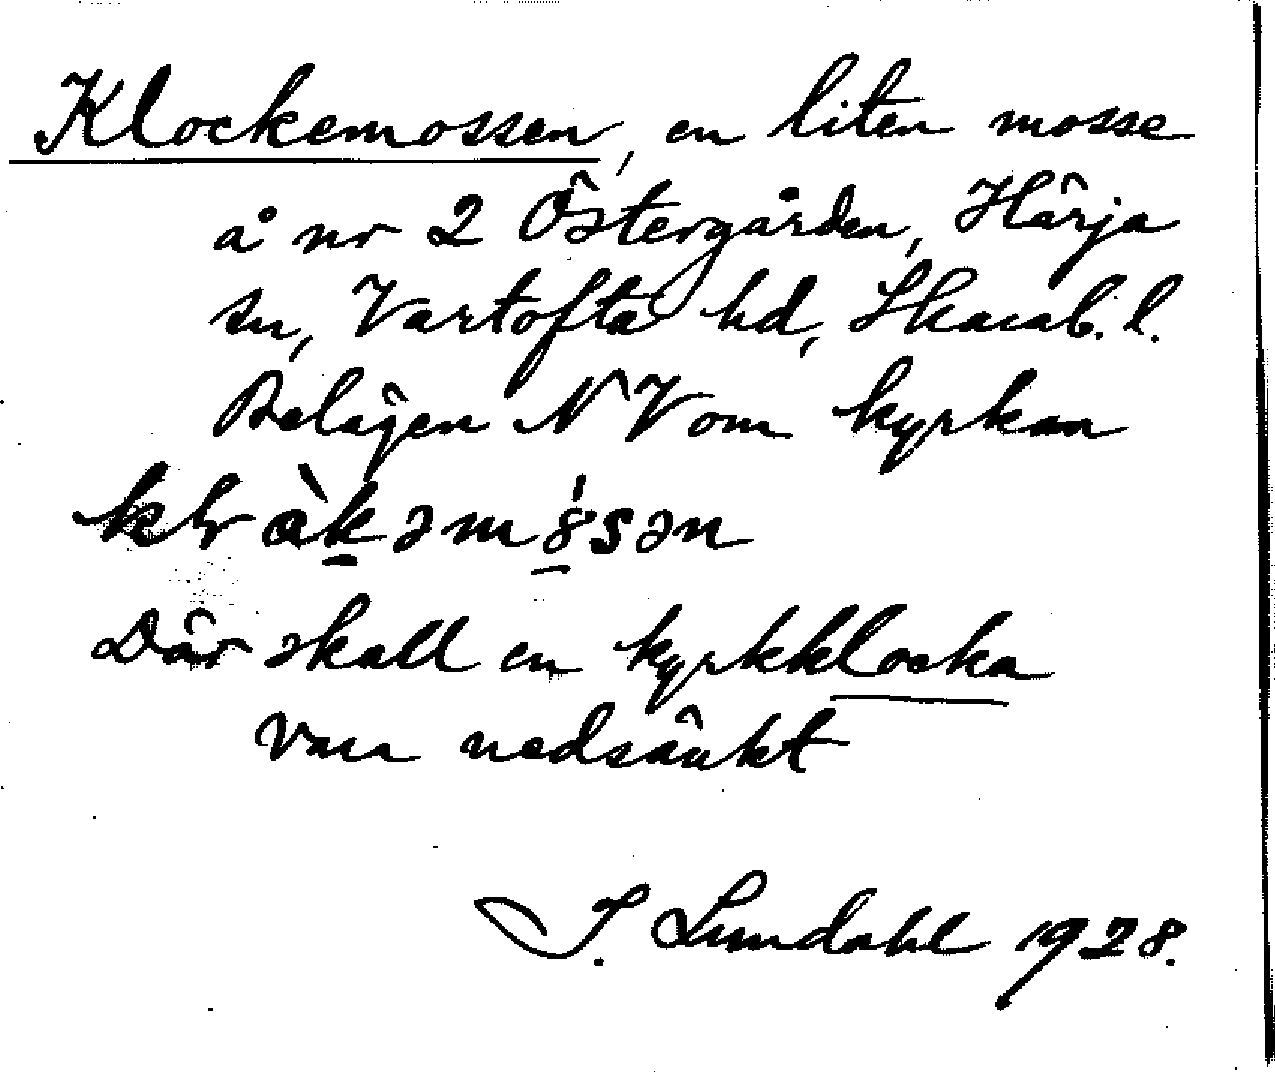 Klockemossen, en liten mosse
å nr 2 Östergården, Härja
sn, Vartofta hd, Skarab. l.
Belägen NV om kyrkan
Där skall en kyrkklocka
vara nedsänkt
I. Lundahl 1928.